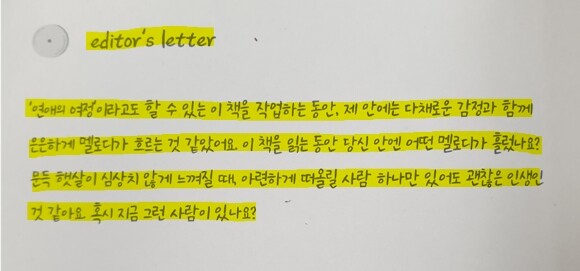 editor's letter
'연애의 여정'이라고도 할 수 있는 이 책을 작업하는 동안, 제 안에는 다채로운 감정과 함께
은은하게 멜로디가 흐르는 것 같았어요. 이 책을 읽는 동안 당신 안엔 어떤 멜로디가 흘렀나요?
문득 햇살이 심상치 않게 느껴질 때, 아련하게 떠올릴 사람 하나만 있어도 괜찮은 인생인
것 같아요. 혹시 지금 그런 사람이 있나요?